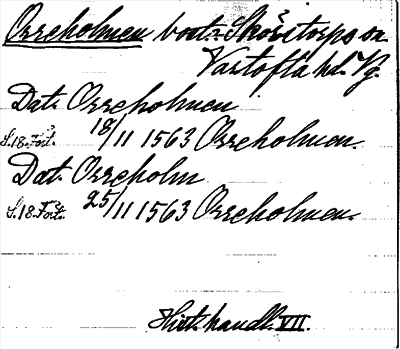 Orreholmen bost. Skörstorps sn.
Vartofta hd. Vg.
Dat. Orreholmen
S.18. Fört. 18/11 1563 Orreholmen.
Dat. Orreholm
S.18. Fört. 25/11 1563 Orreholmen.
Hist. handl. VII.